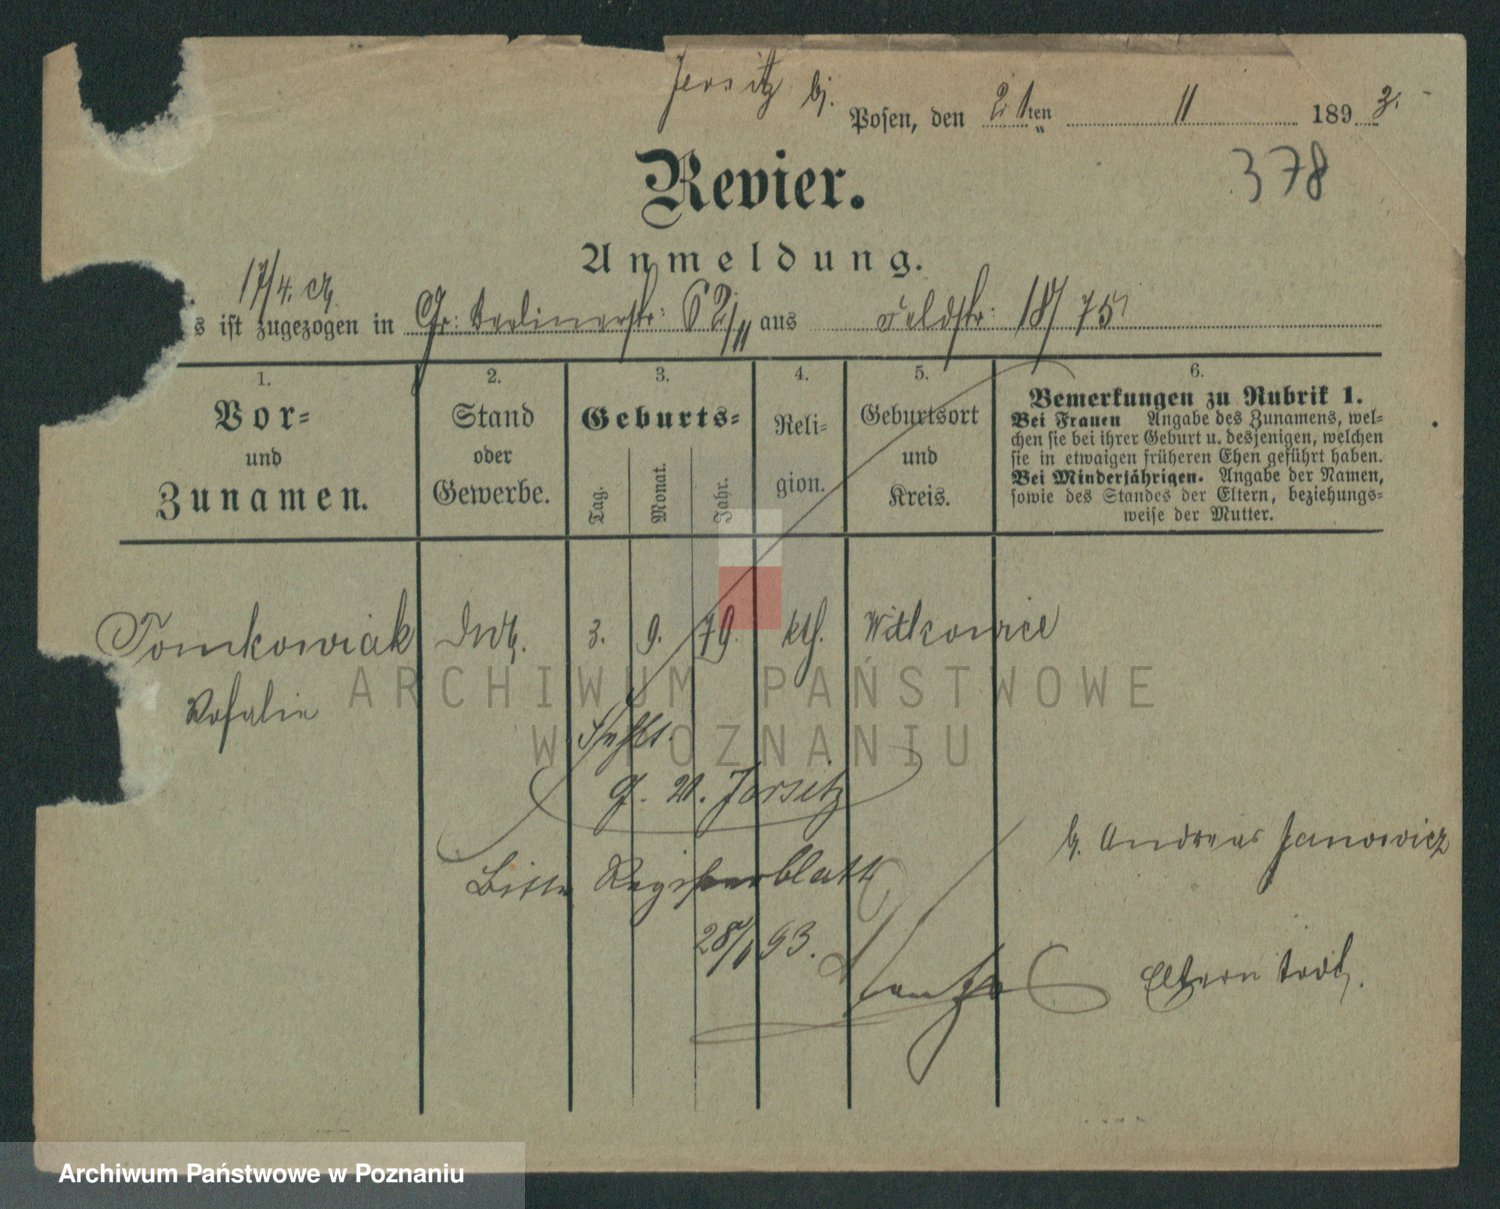 Jersitz bj. Posen, den 21ten 11 1893.
378
Revier.
Anmeldung.
17/4. cr.
s ist zugezogen in Gr: Berlinerstr: 62/II aus Feldstr: 18/75
1.
Vor-
und
Zunamen.
2.
Stand
oder
Gewerbe.
3.
Geburts-
Tag.
Monat.
Jahr.
4.
Reli-
gion.
5.
Geburtsort
und
Kreis.
6.
Bemerkungen zu Rubrik 1.
Bei Frauen Angabe des Zunamens, wel-
chen sie bei ihrer Geburt u. desjenigen, welchen
sie in etwaigen früheren Ehen geführt haben.
Bei Minderjährigen. Angabe der Namen,
sowie des Standes der Eltern, beziehungs-
weise der Mutter.
Tomkowiak 3. 9. 79. kth. Witkowice
Rosalie
ARCHIWUM PAŃSTWOWE
W POZNANIU
Jersitz
b. Andreas Janowicz
Bitte Registerblatt
93.
Eltern todt.
Archiwum Państwowe w Poznaniu